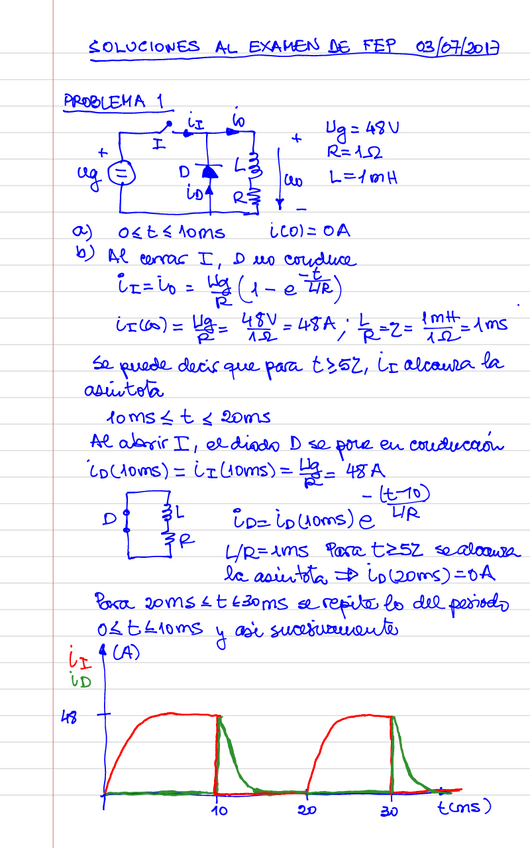 SOLUCIONES AL EXAMEN DE FEP 03/07/2017
PROBLEMA 1
I iI iO + ug = 48V
+ ug D L R = 1Ω
iD R uo L = 1mH
-
a) 0 ≤ t ≤ 10ms i(0) = 0A
b) Al cerrar I, D no conduce
iI = iO = ug/R (1 - e^(-t/(L/R)))
iI(∞) = ug/R = 48V/1Ω = 48A; L/R = Z = 1mH/1Ω = 1ms
Se puede decir que para t ≥ 5Z, iI alcanza la
asíntota
10ms ≤ t ≤ 20ms
Al abrir I, el diodo D se pone en conducción
iD(10ms) = iI(10ms) = ug/R = 48A
D L R iD = iD(10ms) e^(-(t-10)/(L/R))
L/R = 1ms Para t ≥ 5Z se alcanza
la asíntota ⇒ iD(20ms) = 0A
Para 20ms ≤ t ≤ 30ms se repite lo del periodo
0 ≤ t ≤ 10ms y así sucesivamente
iI (A)
iD
48
10 20 30 t(ms)